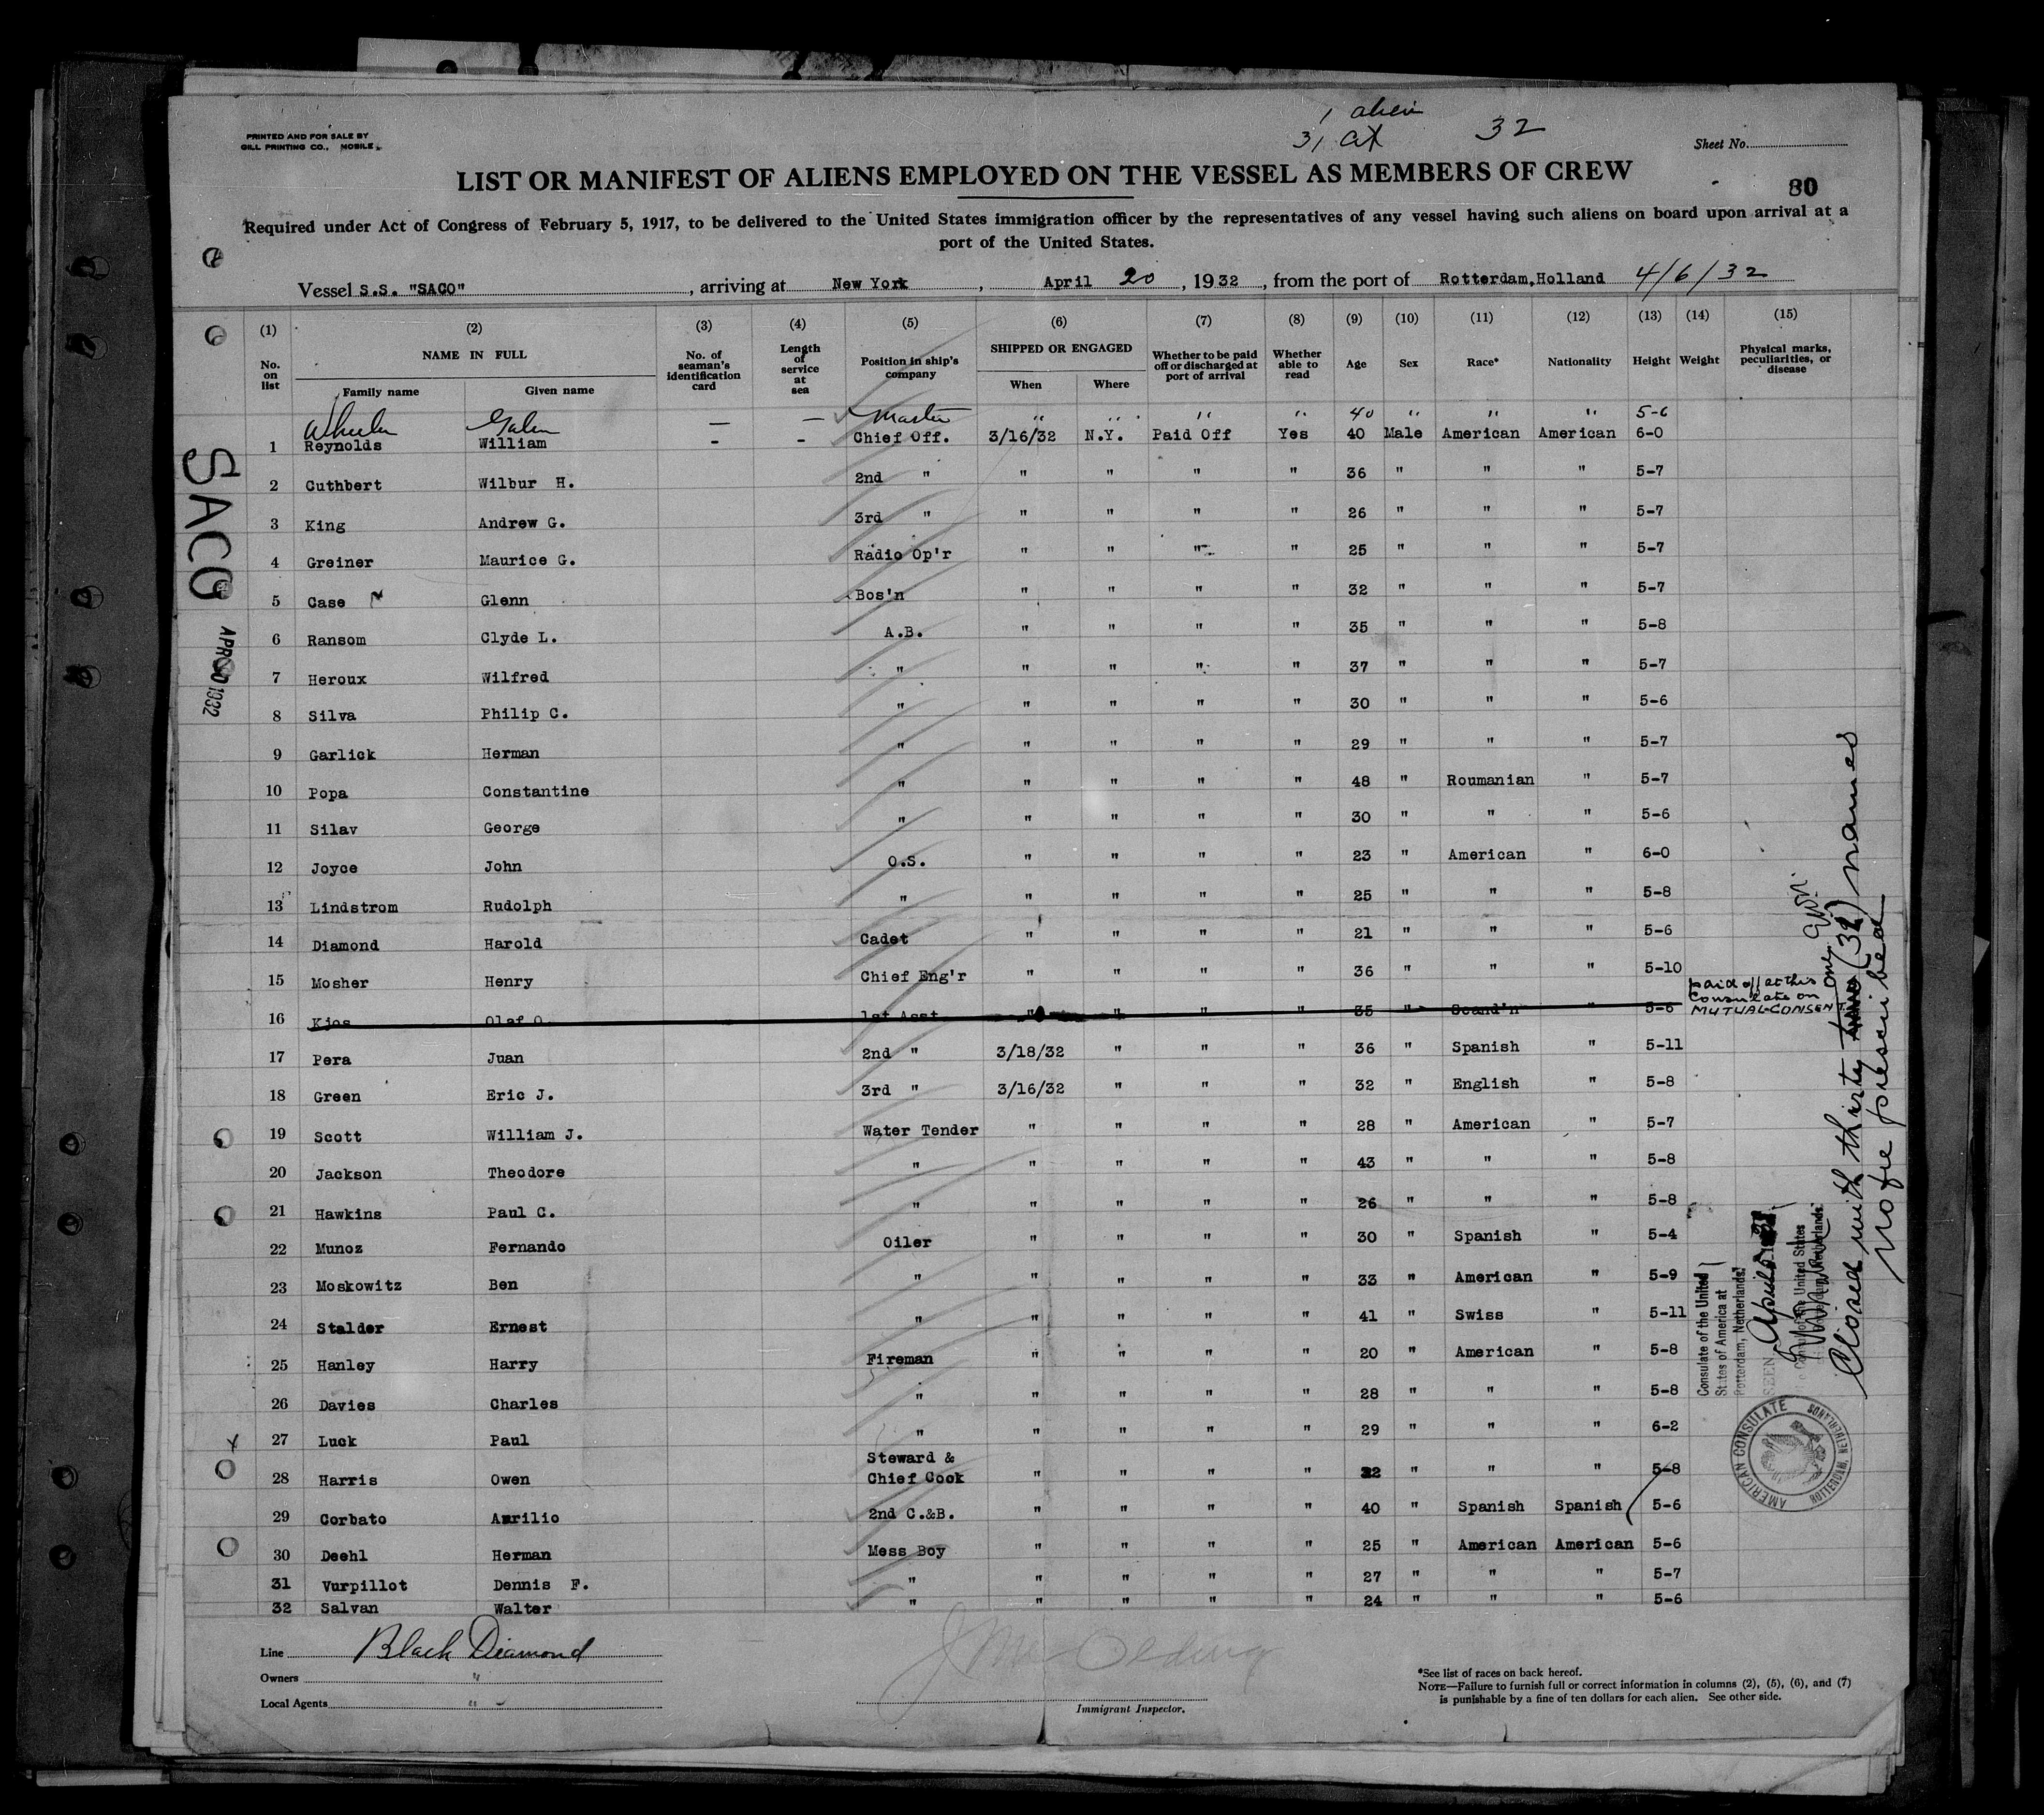 PRINTED AND FOR SALE BY
GILL PRINTING CO., MOBILE
1 alien
31 at 32
Sheet No.
LIST OR MANIFEST OF ALIENS EMPLOYED ON THE VESSEL AS MEMBERS OF CREW
80
Required under Act of Congress of February 5, 1917, to be delivered to the United States immigration officer by the representatives of any vessel having such aliens on board upon arrival at a
port of the United States.
Vessel S.S. "SACO", arriving at New York, April 20, 1932, from the port of Rotterdam,Holland 4/6/32
(1) (2) (3) (4) (5) (6) (7) (8) (9) (10) (11) (12) (13) (14) (15)
No. on list NAME IN FULL Family name Given name No. of seaman's identification card Length of service at sea Position in ship's company SHIPPED OR ENGAGED When Where Whether to be paid off or discharged at port of arrival Whether able to read Age Sex Race* Nationality Height Weight Physical marks, peculiarities, or disease
Wheeler Galen — — Master " " " " 40 " " " 5-6
1 Reynolds William - - Chief Off. 3/16/32 N.Y. Paid Off Yes 40 Male American American 6-0
2 Cuthbert Wilbur H. 2nd " " " " " 36 " " " 5-7
3 King Andrew G. 3rd " " " " " 26 " " " 5-7
4 Greiner Maurice G. Radio Op'r " " " " 25 " " " 5-7
5 Case Glenn Bos'n " " " " 32 " " " 5-7
6 Ransom Clyde L. A.B. " " " " 35 " " " 5-8
7 Heroux Wilfred " " " " " 37 " " " 5-7
8 Silva Philip C. " " " " " 30 " " " 5-6
9 Garlick Herman " " " " " 29 " " " 5-7
10 Popa Constantine " " " " " 48 " Roumanian " 5-7
11 Silav George " " " " " 30 " " " 5-6
12 Joyce John O.S. " " " " 23 " American " 6-0
13 Lindstrom Rudolph " " " " " 25 " " " 5-8
14 Diamond Harold Cadet " " " " 21 " " " 5-6
15 Mosher Henry Chief Eng'r " " " " 36 " " " 5-10
16 Kjos Olaf O. 1st Asst " " " " 35 " Scand'n " 5-6 paid off at this Consulate on MUTUAL CONSENT.
17 Pera Juan 2nd " 3/18/32 " " " 36 " Spanish " 5-11
18 Green Eric J. 3rd " 3/16/32 " " " 32 " English " 5-8
19 Scott William J. Water Tender " " " " 28 " American " 5-7
20 Jackson Theodore " " " " " 43 " " " 5-8
21 Hawkins Paul C. " " " " " 26 " " " 5-8
22 Munoz Fernando Oiler " " " " 30 " Spanish " 5-4
23 Moskowitz Ben " " " " " 33 " American " 5-9
24 Stalder Ernest " " " " " 41 " Swiss " 5-11
25 Hanley Harry Fireman " " " " 20 " American " 5-8
26 Davies Charles " " " " " 28 " " " 5-8
27 Luck Paul " " " " " 29 " " " 6-2
28 Harris Owen Steward & Chief Cook " " " " 22 " " " 5-8
29 Corbato Aurilio 2nd C.&B. " " " " 40 " Spanish Spanish 5-6
30 Deehl Herman Mess Boy " " " " 25 " American American 5-6
31 Vurpillot Dennis F. " " " " " 27 " " " 5-7
32 Salvan Walter " " " " " 24 " " " 5-6
SACO
APR 20 1932
Closed with thirty one (32) names
No fee prescribed
Consulate of the United
States of America at
Rotterdam, Netherlands.
SEEN April
Consul of the United States
Rotterdam, Netherlands.
AMERICAN CONSULATE
ROTTERDAM, NETHERLANDS
Line Black Diamond
Owners "
Local Agents " "
Immigrant Inspector.
*See list of races on back hereof.
NOTE—Failure to furnish full or correct information in columns (2), (5), (6), and (7)
is punishable by a fine of ten dollars for each alien. See other side.